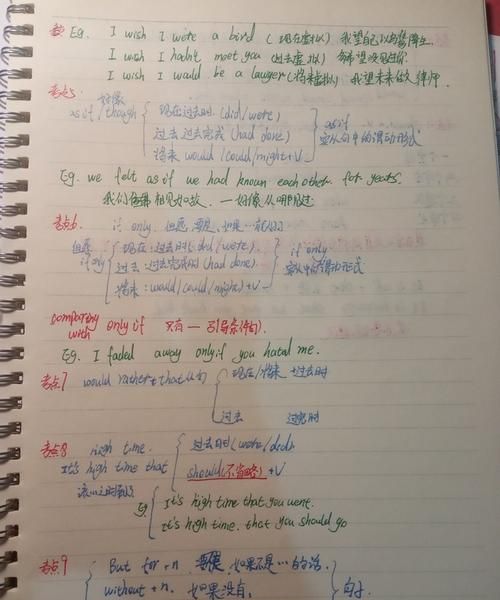 Eg. I wish I were a bird (现在虚拟) 我望自己
I wish I hadn't meet you (过去虚拟) 希望没见过你
I wish I would be a lawyer (将来虚拟) 我望未来做人律师.
考点5 好像
as if / though
现在 过去时 (did/were)
过去 过去完成 (had done)
将来 would/could/might+V
as if 从句中的谓动形式
Eg. we felt as if we had known each other for years.
我们
考点6 if only 但愿, 要是, 如果…就好了
但愿 if only
现在: 过去时 did/were)
过去: 过去完成时 (had done)
将来: would/could/might) +V
if only 从中的谓动形式
comparing with only if 只有 — 引导条件句).
Eg. I faded away only if you hated me.
考点7 would rather + that 从句
现在/将来 +过去时
过去 过完时
考点8 high time.
It's high time that
过去时 (were/did)
should (不省略) +V
Eg It's high time that you went.
It's high time. that you should go
考点9
But for +n. 要是, 如果不是…的话.
without +n. 如果没有,
句子.